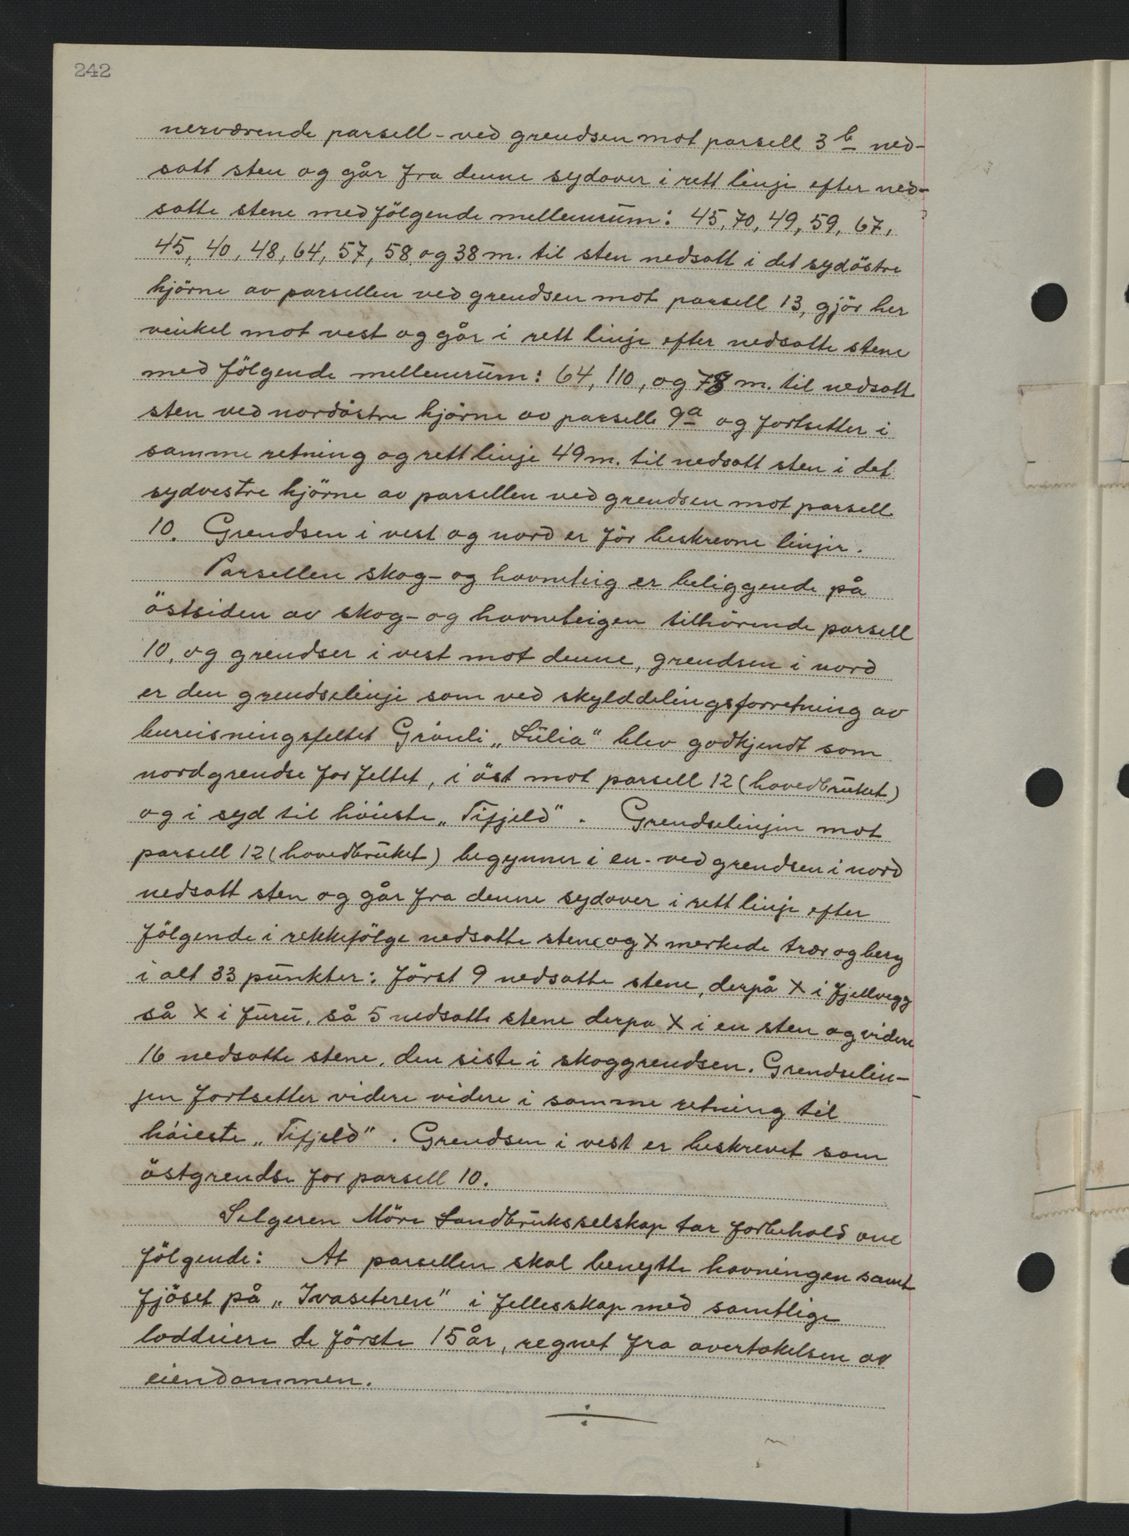 242
nerværende parsell - ved grendsen mot parsell 3 b ned-
satt sten og går fra denne sydover i rett linje efter ned-
satte stene med følgende mellemrum: 45, 70, 49, 59, 67,
45, 40, 48, 64, 57, 58 og 38 m. til sten nedsatt i det sydöstre
hjörne av parsellen ved grendsen mot parsell 13, gjör her
vinkel mot vest og går i rett linje efter nedsatte stene
med fölgende mellemrum: 64, 110, og 78 m. til nedsatt
sten ved nordöstre hjörne av parsell 9a og fortsetter i
samme retning og rett linje 49 m. til nedsatt sten i det
sydvestre hjörne av parsellen ved grendsen mot parsell
10. Grendsen i vest og nord er för beskrevne linjer.
Parsellen skog- og havneteig er beliggende på
östsiden av skog- og havneteigen tilhörende parsell
10, og grendser i vest mot denne, grendsen i nord
er den grendselinje som ved skylddelingsforretning av
bureisningsfeltet Grönli „Lülia" blev godkjendt som
nordgrendse for feltet, i öst mot parsell 12 (hovedbrüket)
og i syd til höieste „Tifjeld". Grendselinjen mot
parsell 12 (hovedbrüket) begynner i en - ved grendsen i nord
nedsatt sten og går fra denne sydover i rett linje efter
fölgende i rekkefölge nedsatte stene og X merkede trær og berg
i alt 33 pünkter: först 9 nedsatte stene, derpå X i fjellvegg
så X i fürü, så 5 nedsatte stene derpa X i en sten og videre
16 nedsatte stene, den siste i skoggrendsen. Grendselin-
jen fortsetter videre videre i samme retning til
höieste „Tifjeld". Grendsen i vest er beskrevet som
östgrendse for parsell 10.
Selgeren Möre Landbrüksselskap tar forbehold om
fölgende: At parsellen skal benytte havningen samt
fjöset på „Ivaseteren" i fellesskap med samtlige
loddeiere de förste 15 år, regnet fra overtakelsen av
eiendommen.